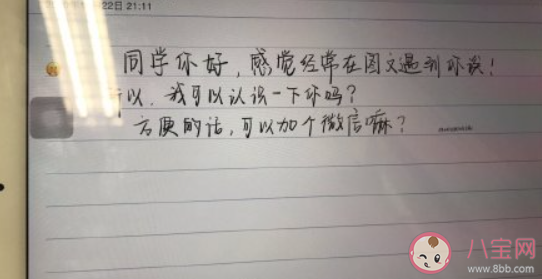 22日 21:11
同学你好，感觉经常在图文遇到你诶！
所以，我可以认识一下你吗？
方便的话，可以加个微信嘛？
八宝网
www.8bb.com